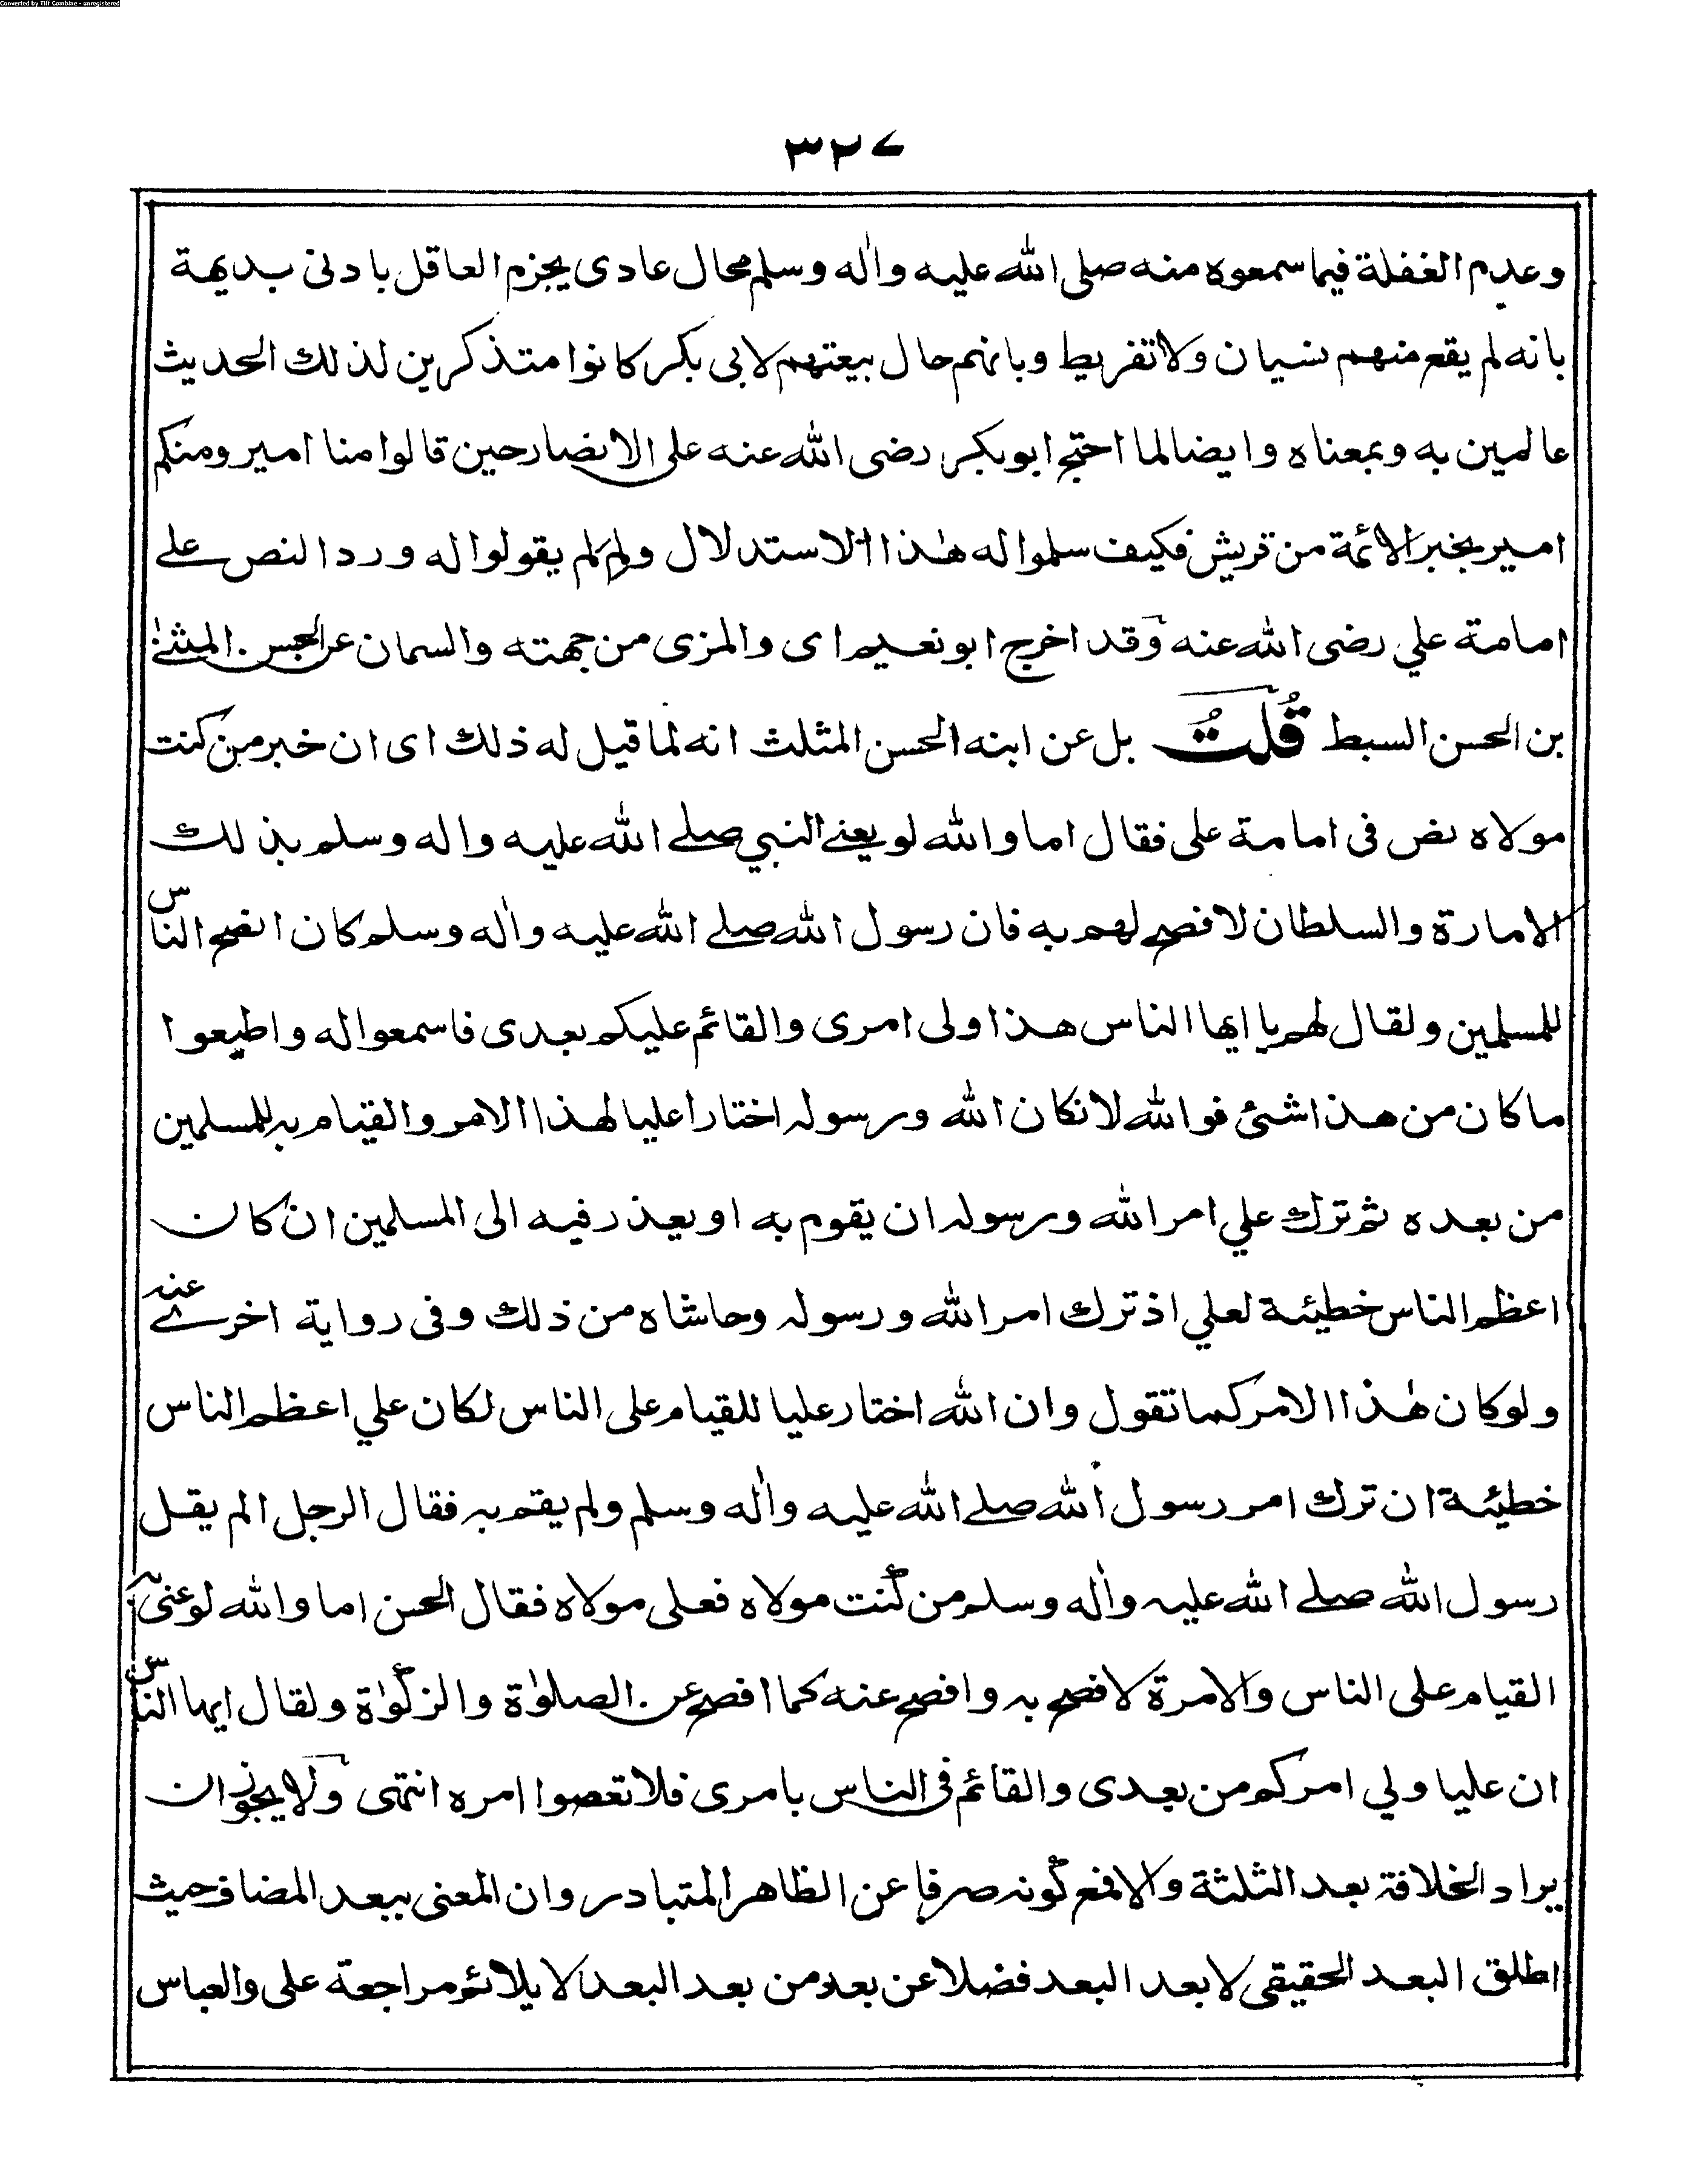 Converted by Tiff Combine - unregistered
٣٢٧
وعدم الغفلة فيما سمعوه منه صلى الله عليه واٰله وسلم محال عادى يجزم العاقل بادنى بديهة
بانه لم يقع منهم نسيان ولا تفريط وبانهم حال بيعتهم لابى بكر كانوا متذكرين لذلك الحديث
عالمين به وبمعناه وايضا لما احتج ابوبكر رضى الله عنه على الانصار حين قالوا منا امير ومنكم
امير بخبر الائمة من قريش فكيف سلموا له هٰذا الاستدلال ولم لم يقولوا له ورد النص على
امامة علي رضى الله عنه وقد اخرج ابو نعيم اى والمزى من جهته والسمان عن الحسن المثنى
بن الحسن السبط قُلتُ بل عن ابنه الحسن المثلث انه لما قيل له ذلك اى ان خبر من كنت
مولاه نص فى امامة على فقال اما والله لو يعنى النبي صلى الله عليه واله وسلم بذلك
الامارة والسلطان لافصح لهم به فان رسول الله صلى الله عليه واٰله وسلم كان انصح الناس
للمسلمين ولقال لهم يا ايها الناس هذا ولى امرى والقائم عليكم بعدى فاسمعوا له واطيعوا
ما كان من هذا شئ فوالله لان كان الله ورسوله اختارا عليا لهذا الامر والقيام به للمسلمين
من بعده ثم ترك علي امر الله ورسوله ان يقوم به او يعذر فيه الى المسلمين ان كان
اعظم الناس خطيئة لعلي اذ ترك امر الله ورسوله وحاشاه من ذلك وفى رواية اخرى عنه
ولو كان هٰذا الامر كما تقول وان الله اختار عليا للقيام على الناس لكان علي اعظم الناس
خطيئة ان ترك امر رسول الله صلى الله عليه واٰله وسلم ولم يقم به فقال الرجل الم يقل
رسول الله صلى الله عليه واٰله وسلم من كنت مولاه فعلى مولاه فقال الحسن اما والله لو عنى به
القيام على الناس والامرة لافصح به وافصح عنه كما افصح عن الصلوٰة والزكوٰة ولقال ايها الناس
ان عليا ولي امركم من بعدى والقائم فى الناس بامرى فلا تعصوا امره انتهى ولا يجوز ان
يراد الخلافة بعد الثلثة والا فمع كونه صرفا عن الظاهر المتبادر وان المعنى ببعد المضاف حيث
اطلق البعد الحقيقى لا بعد البعد فضلا عن بعد من بعد البعد لا يلائم مراجعة على والعباس